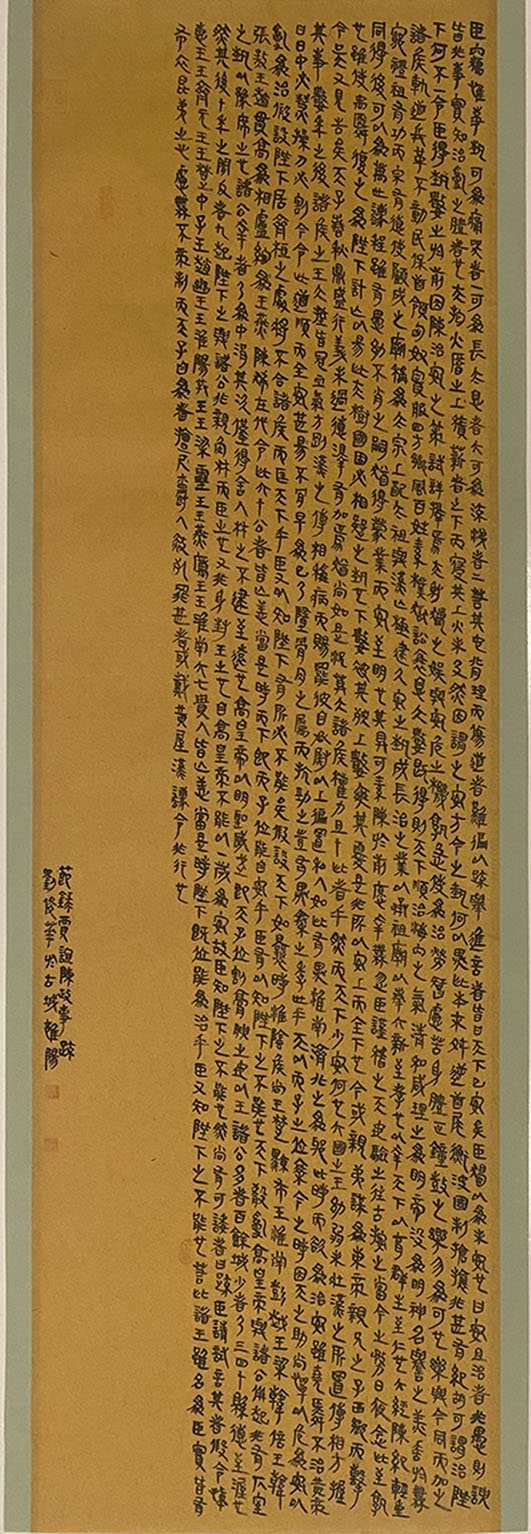 臣竊惟事埶可為痛哭者一可為長太息者六可為流涕者二若其它背理而傷道者難徧以疏舉進言者皆曰天下已安矣臣獨以為未安也曰安且治者非愚則諛
皆非事實知治亂之體者也夫抱火厝之上積薪者之下而寢其上火未及然因謂之安方今之埶何以異此本末舛逆首尾衡決國制搶攘非甚有紀胡可謂治陛
下何不一令臣得孰數之於前因陳治安之策試詳擇焉夫射獵之娛與安危之機孰急使為治勞智慮苦身體乏鐘鼓之樂勿為可也樂與今同而加之
諸侯軌道兵革不動民保首領匈奴賓服四方鄉風百姓素樸獄訟衰息大數既得則天下順治海內之氣清和咸理生為明帝沒為明神名譽之美垂於無
窮禮祖有功而宗有德使顧成之廟稱為太宗上配太祖與漢亡極建久安之埶成長治之業以承祖廟以奉六親至孝也以幸天下以育群生至仁也立經陳紀輕重
同得後可以為萬世法程雖有愚幼不肖之嗣猶得蒙業而安至明也其具可素陳於前願幸無忽臣謹稽之天地驗之往古按之當今之務日夜念此至孰
也雖使禹舜復生為陛下計亡以易此夫樹國固必相疑之埶也下數被其殃上數爽其憂甚非所以安上而全下也今或親弟謀為東帝親兄之子西鄉而擊
今吳又見告矣天子春秋鼎盛行義未過德澤有加焉猶尚如是況莫大諸侯權力且十此者乎然而天下少安何也大國之王幼弱未壯漢之所置傅相方握
其事數年之後諸侯之王大抵皆冠血氣方剛漢之傅相稱病而賜罷彼自丞尉以上徧置私人如此有異淮南濟北之為邪此時而欲為治安雖堯舜不治黃帝
曰日中必熭操刀必割今令此道順而全安甚易不肯早為已乃墮骨肉之屬而抗剄之豈有異秦之季世乎夫以天子之位乘今之時因天之助尚憚以危為安以
亂為治假設陛下居齊桓之處將不合諸侯而匡天下乎臣又以知陛下有所必不能矣假設天下如曩時淮陰侯尚王楚黥布王淮南彭越王梁韓信王韓
張敖王趙貫高為相盧綰為王燕陳豨在代令此六七公者皆亡恙當是時而陛下即天子位能自安乎臣有以知陛下之不能也天下殽亂高皇帝與諸公併起非有仄室
之埶以豫席之也諸公幸者乃為中涓其次僅得舍人材之不逮至遠也高皇帝以明聖威武即天子位割膏腴之地以王諸公多者百餘城少者乃三四十縣德至渥也
然其後十年之間反者九起陛下之與諸公非親角材而臣之也又非身封王之也自高皇帝不能以是一歲為安故臣知陛下之不能也然尚有可諉者曰疏臣請試言其親者假令悼
惠王王齊元王王楚中子王趙幽王王淮陽共王王梁靈王王燕厲王王淮南六七貴人皆亡恙當是時陛下即位能為治乎臣又知陛下之不能也若此諸王雖名為臣實皆有
布衣昆弟之心慮無不帝制而天子自為者擅爵人赦死罪甚者或戴黃屋漢法令非行也
節錄賈誼陳政事疏
劉俊華於古城雒陽